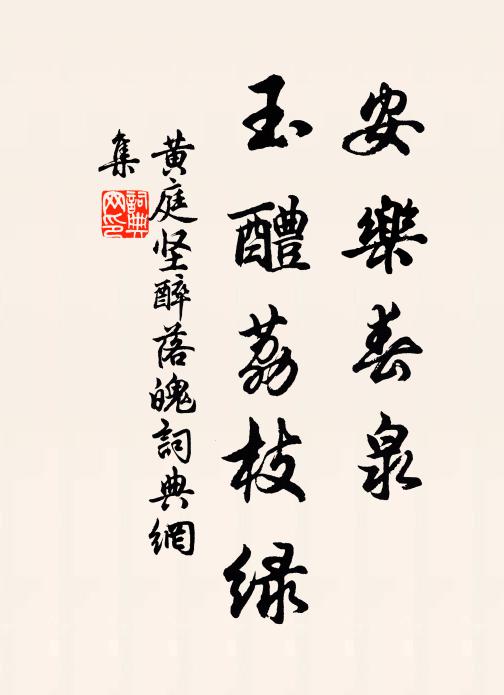 安樂春泉
玉醴荔枝绿
黄庭坚醉落魄詞典網
集
詞典
网印